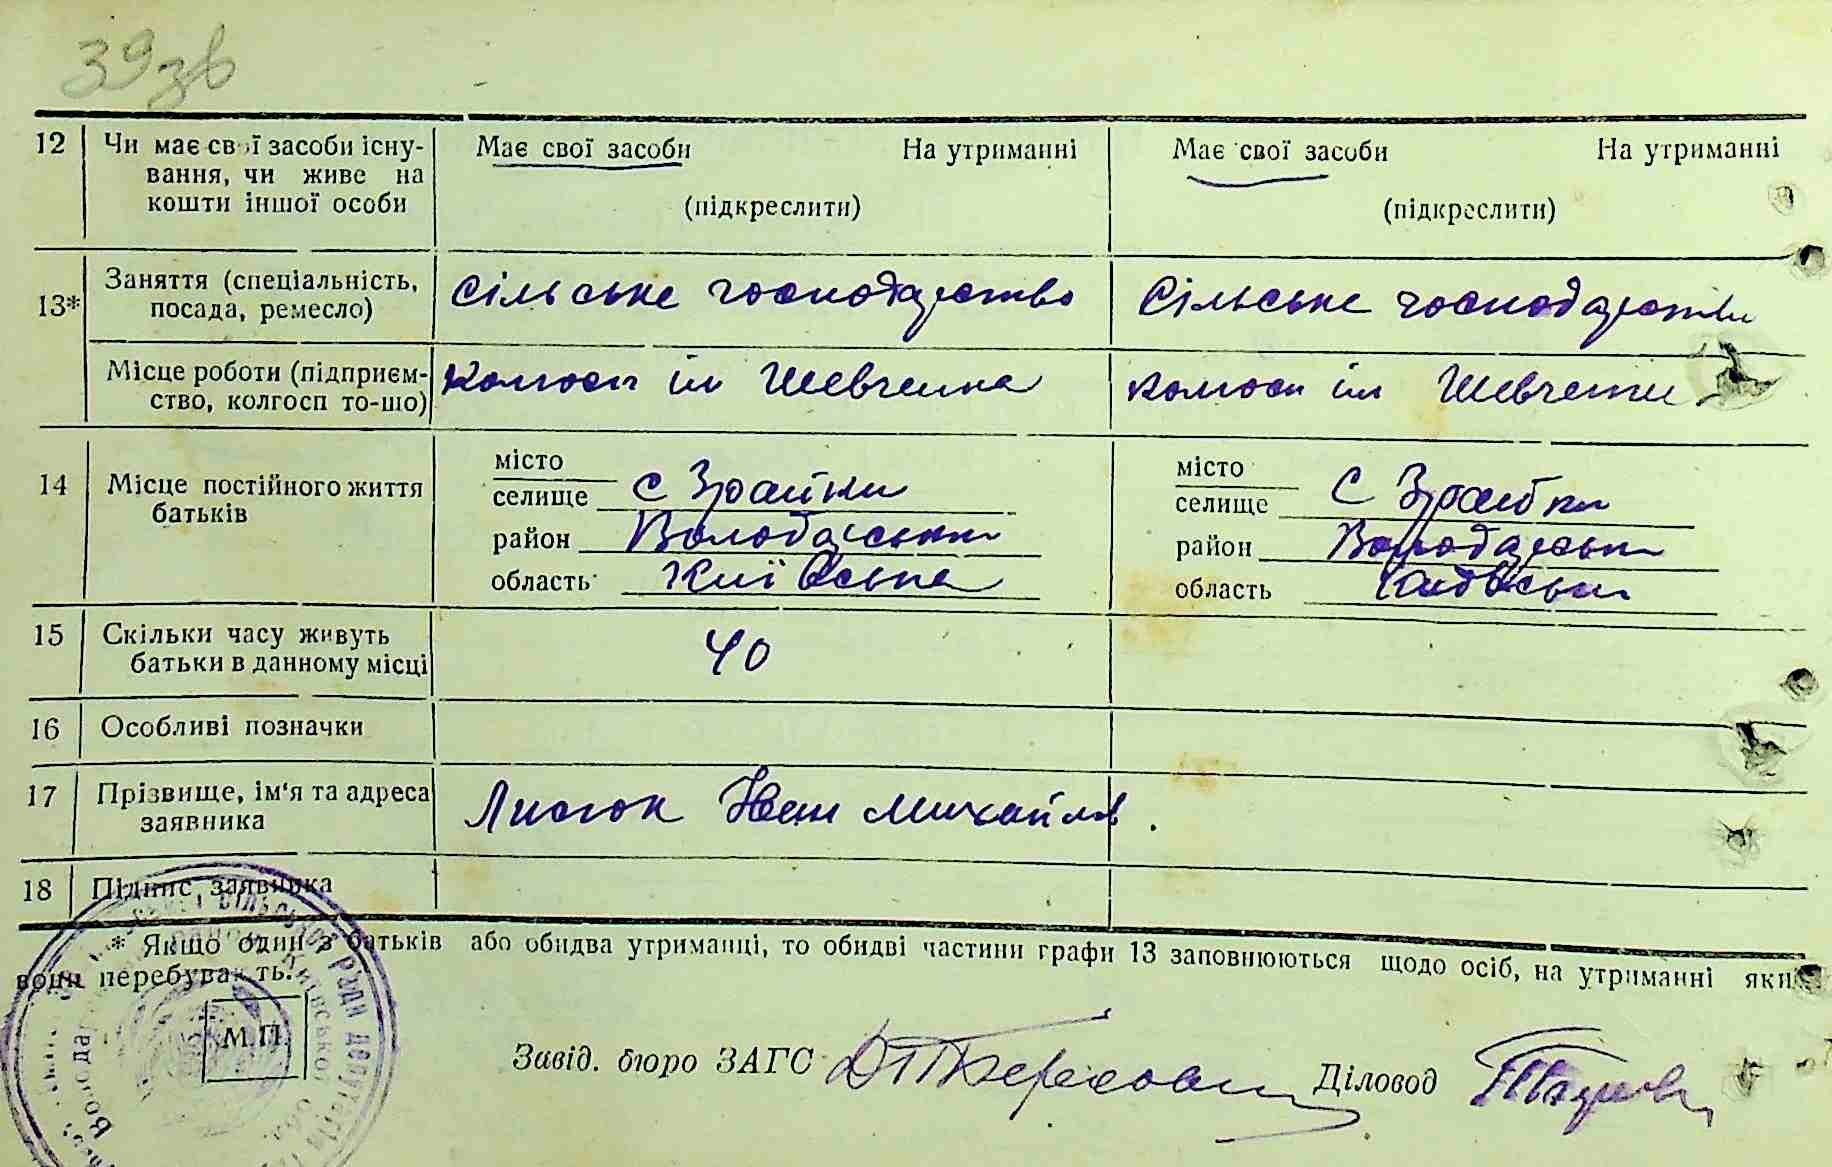 39зв
12 Чи має свої засоби існу- Має свої засоби На утриманні Має свої засоби На утриманні
вання, чи живе на
кошти іншої особи (підкреслити) (підкреслити)
13* Заняття (спеціальність, Сільське господарство Сільське господарство
посада, ремесло)
Місце роботи (підприєм- колгосп ім Шевченка колгосп ім Шевченка
ство, колгосп то-що)
14 Місце постійного життя місто місто
батьків селище с Зрайки селище с Зрайки
район Володарський район Володарський
область Київська область Київська
15 Скільки часу живуть 40
батьки в данному місці
16 Особливі позначки
17 Прізвище, ім'я та адреса Лисюк Иван Михайлов.
заявника
18 Підпис заявника
* Якщо один з батьків або обидва утриманці, то обидві частини графи 13 заповнюються щодо осіб, на утриманні яких
вони перебувають.
М.П.
Завід. бюро ЗАГС Діловод
сільської Ради депутатів
Київської обл.